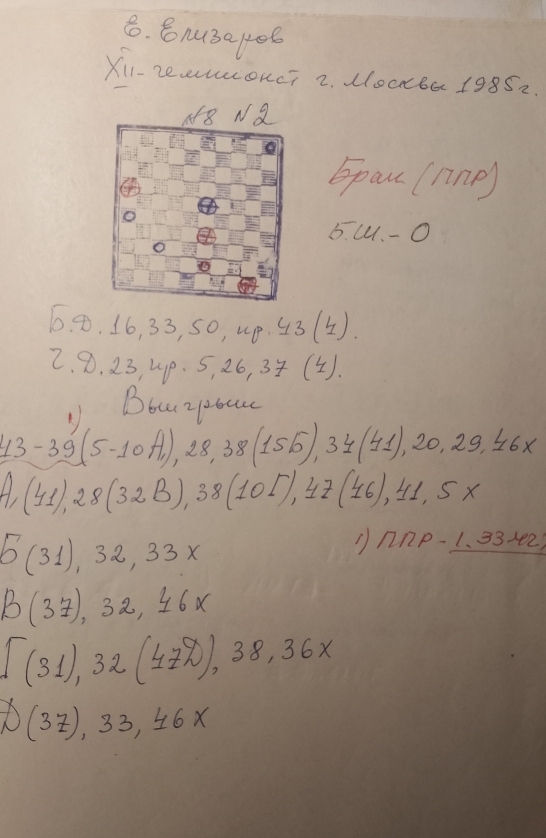 Е. Елизаров
XII - чемпионат г. Москвы 1985г.
N8 N2
Брак (ППР)
Б.Ш. - 0
Б.Д. 16, 33, 50, пр. 43 (4).
Ч.Д. 23, пр. 5, 26, 37 (4).
Выигрыш
1)
43-39(5-10А), 28, 38(15Б), 34(41), 20, 29, 46х
А(41), 28(32В), 38(10Г), 47(46), 41, 5х
Б(31), 32, 33х
1) ППР - 1. 33
В(37), 32, 46х
Г(31), 32(47Д), 38, 36х
Д(37), 33, 46х